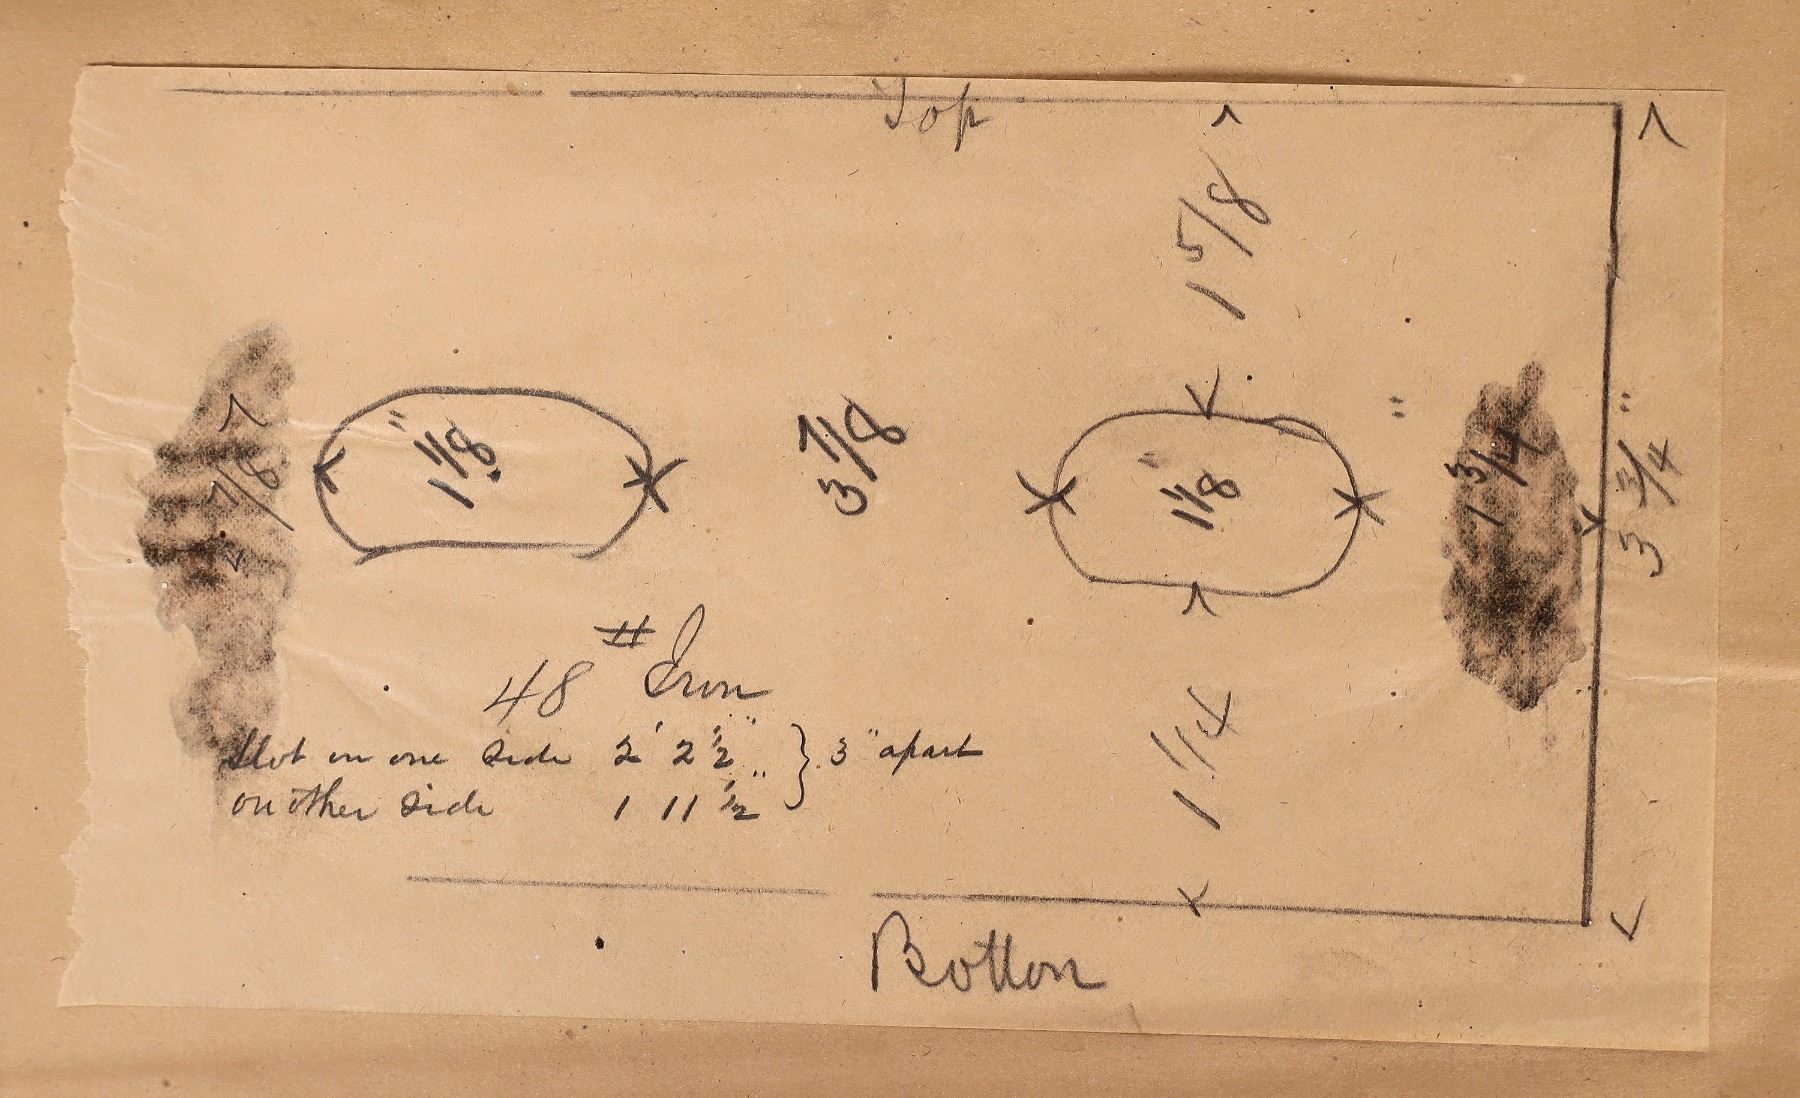 Top
1 5/8
7/8
1 1/8"
3 7/8
1 1/8"
1 3/4"
3 3/4"
48 # Iron
Slot on one side 2' 2 1/2" } 3" apart
on other side 1 11 1/2"
1 1/4
Bottom